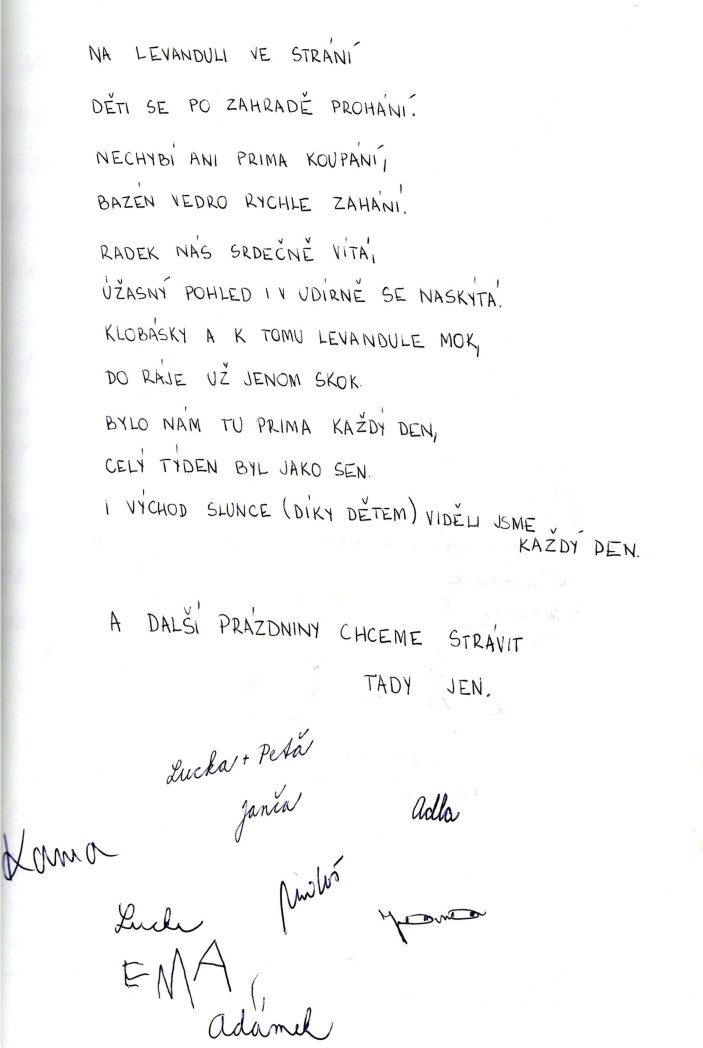 NA LEVANDULI VE STRÁNÍ
DĚTI SE PO ZAHRADĚ PROHÁNÍ.
NECHYBÍ ANI PRIMA KOUPÁNÍ,
BAZÉN VEDRO RYCHLE ZAHÁNÍ.
RADEK NÁS SRDEČNĚ VÍTÁ,
ÚŽASNÝ POHLED I V UDÍRNĚ SE NASKÝTÁ.
KLOBÁSKY A K TOMU LEVANDULE MOK,
DO RÁJE UŽ JENOM SKOK.
BYLO NÁM TU PRIMA KAŽDÝ DEN,
CELÝ TÝDEN BYL JAKO SEN.
I VÝCHOD SLUNCE (DÍKY DĚTEM) VIDĚLI JSME
KAŽDÝ DEN.
A DALŠÍ PRÁZDNINY CHCEME STRÁVIT
TADY JEN.
Lucka + Peťa
Janča
Adla
Miloš
EMA
Adámek